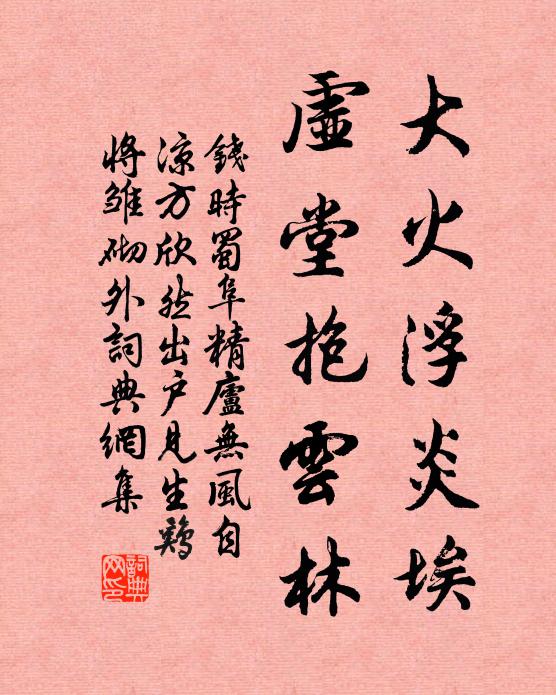 大火浮炎埃
虛堂抱雲林
錢時蜀阜精廬無風自
涼方欣然出户見生鷄
將雛砌外詞典網集
詞典網印